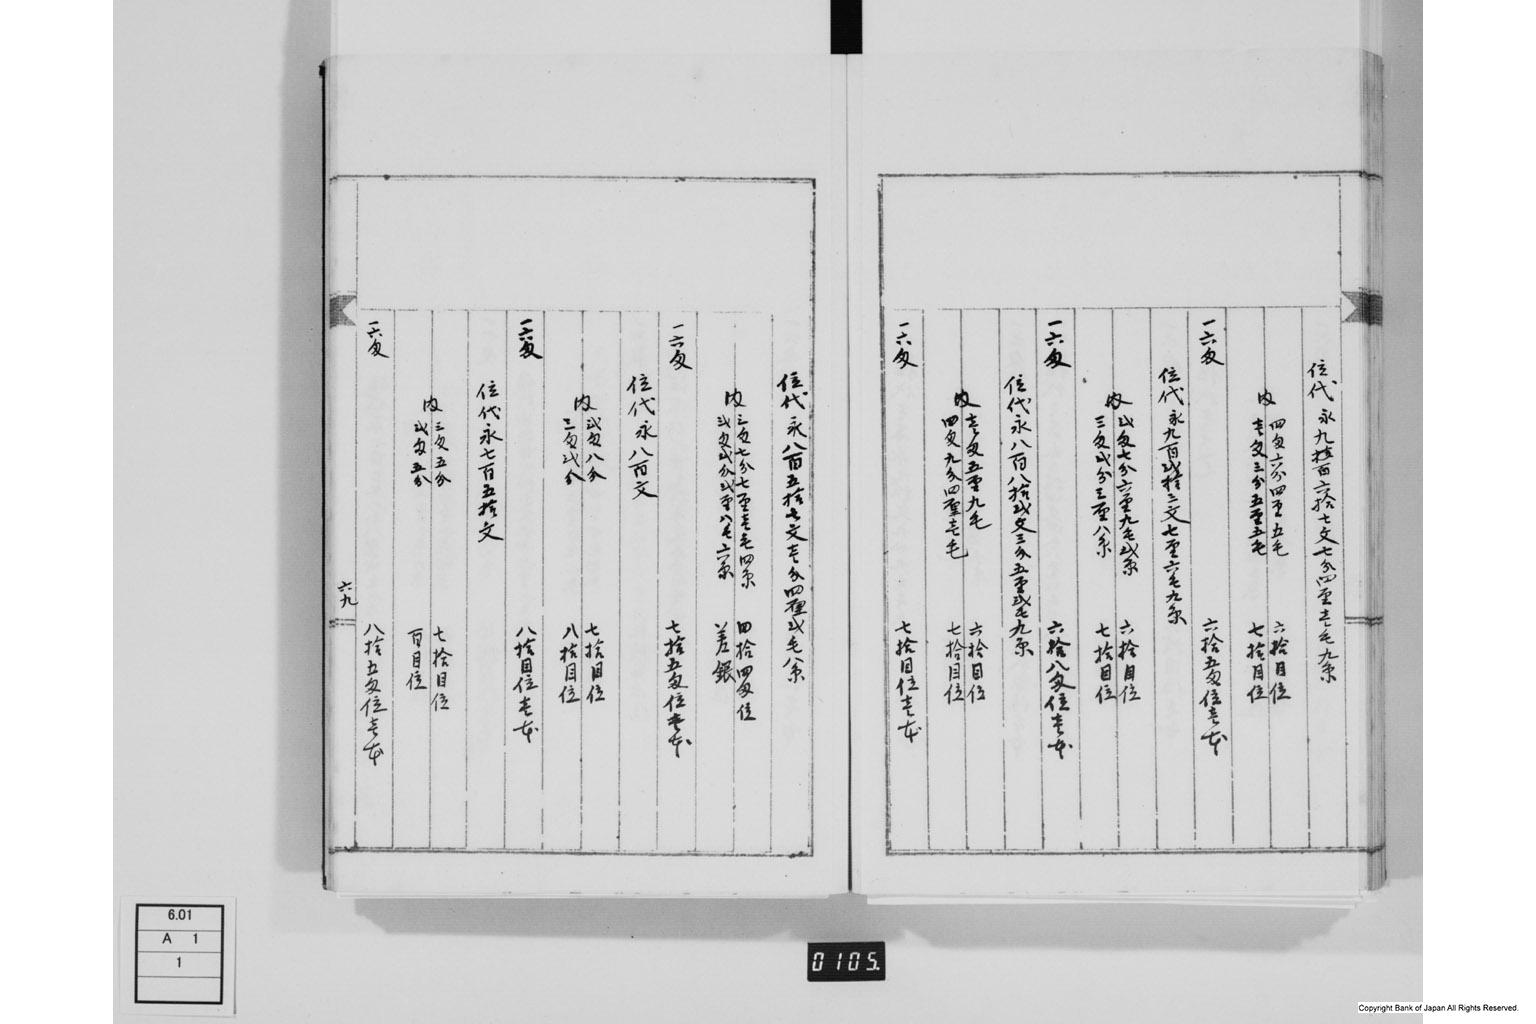 位代永九拾百六拾七文七分四厘壱毛九糸
内 四匁六分四厘五毛 六拾目位
壱匁三分五厘五毛 七拾目位
一六匁 六拾五匁位壱本
位代永九百弐拾三文七厘六毛九糸
内 弐匁七分六厘九毛弐糸 六拾目位
三匁弐分三厘八糸 七拾目位
一六匁 六拾八匁位壱本
位代永八百八拾弐文三分五厘弐毛九糸
内 壱匁五厘九毛 六拾目位
四匁九分四厘壱毛 七拾目位
一六匁 七拾目位壱本
位代永八百五拾七文壱分四厘弐毛八糸
内 三匁七分七厘壱毛四糸 四拾四匁位
弐匁弐分弐厘八毛六糸 差銀
一六匁 七拾五匁位壱本
位代永八百文
内 弐匁八分 七拾目位
三匁弐分 八拾目位
一六匁 八拾目位壱本
位代永七百五拾文
内 三匁五分 七拾目位
弐匁五分 百目位
一六匁 八拾五匁位壱本
六九
6.01
A 1
1
0105
Copyright Bank of Japan All Rights Reserved.